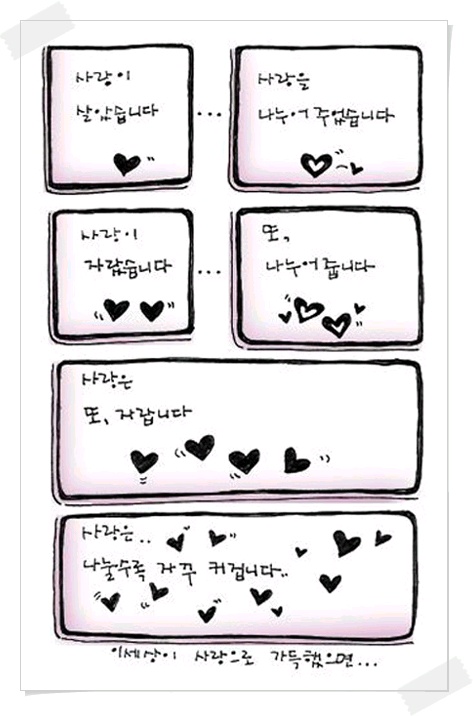 사랑이
살았습니다
...
사랑을
나누어 주었습니다
사랑이
자랐습니다
...
또,
나누어 줍니다
사랑은
또, 자랍니다
사랑은..
나눌수록 자꾸 커집니다..
이세상이 사랑으로 가득했으면...